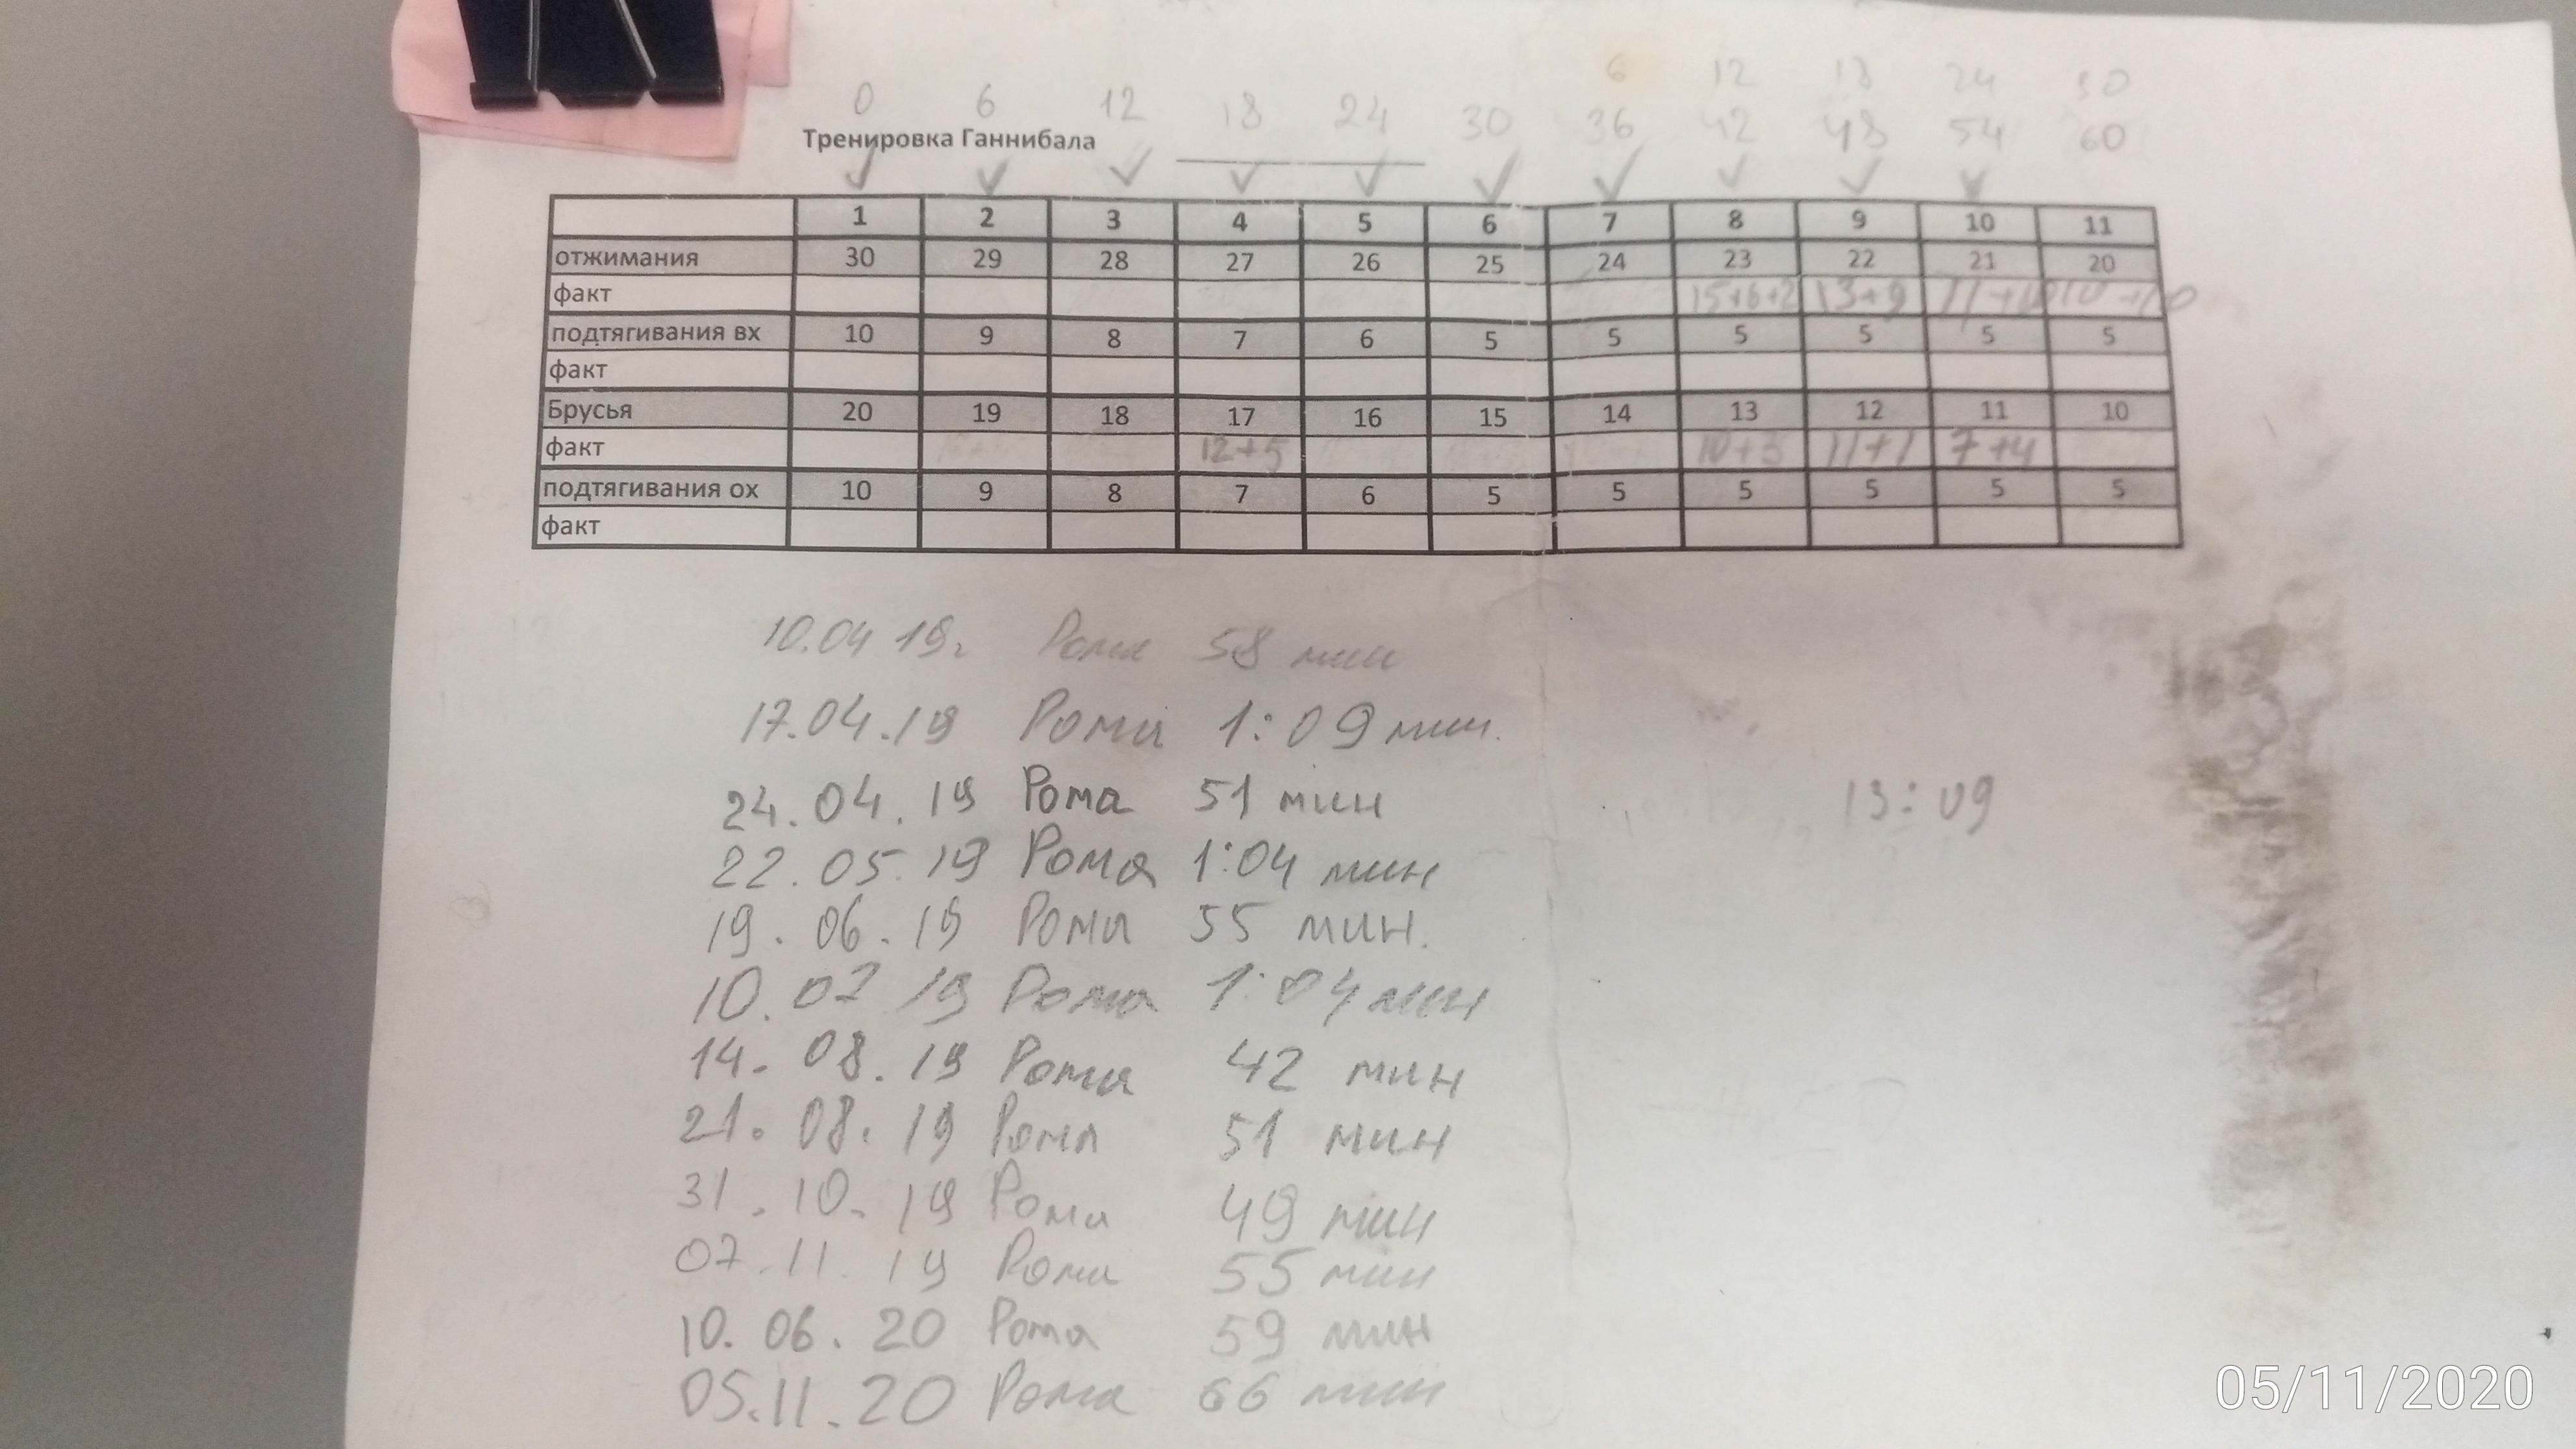 6 12 18 24 30
0 6 12 18 24 30 36 42 48 54 60
Тренировка Ганнибала
1 2 3 4 5 6 7 8 9 10 11
отжимания 30 29 28 27 26 25 24 23 22 21 20
факт 15+6+2 13+9 11+10 10+10
подтягивания вх 10 9 8 7 6 5 5 5 5 5 5
факт
Брусья 20 19 18 17 16 15 14 13 12 11 10
факт 12+5 11+1 7+4
подтягивания ох 10 9 8 7 6 5 5 5 5 5 5
факт
10.04 19г Рома 58 мин
17.04.19 Рома 1:09 мин.
24.04.19 Рома 51 мин
13:09
22.05.19 Рома 1:04 мин
19.06.19 Рома 55 мин.
10.07 19 Рома 1:04 мин
14.08.19 Рома 42 мин
21.08.19 Рома 51 мин
31.10.19 Рома 49 мин
07.11.19 Рома 55 мин
10.06.20 Рома 59 мин
05.11.20 Рома 66 мин
05/11/2020